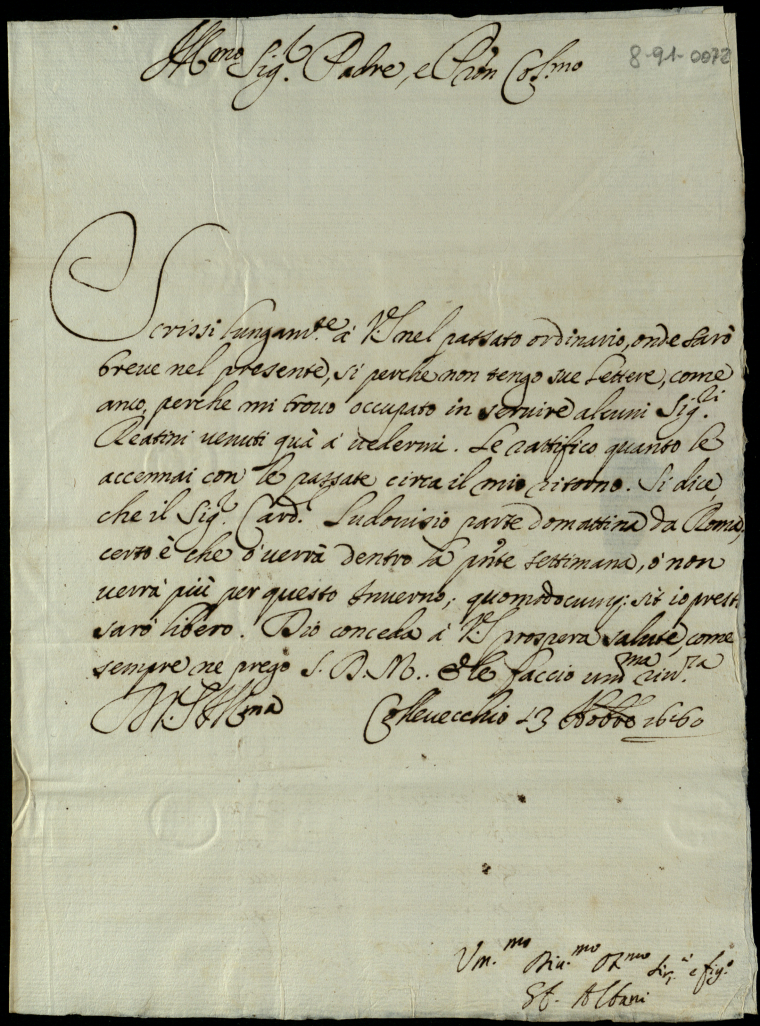 Ill.mo Sig.r Padre, e Pron Col.mo
8-91-0072
Scrissi lungam.te à V.S. nel passato ordinario, onde sarò
breve nel presente, sì perche non tengo sue lettere, come
anco, perche mi trovo occupato in servire alcuni Sig.ri
Reatini venuti quà à vedermi. Le rattifico quanto le
accennai con le passate circa il mio ritorno. Si dice,
che il Sig.r Card.l Ludovisio parte domattina da Roma,
certo è che ò verrà dentro la pn̄te settimana, ò non
verrà più per questo Inverno; quomodocunq; sit io presto
sarò libero. Dio conceda à V.S. prospera salute, come
sempre ne prego S. D. M.. E le faccio um.ma riv.za
D. V.S. Ill.ma Collevecchio 13 9bre 1660
Um.mo Div.mo Obl.mo Ser.re e fig.o
Albani